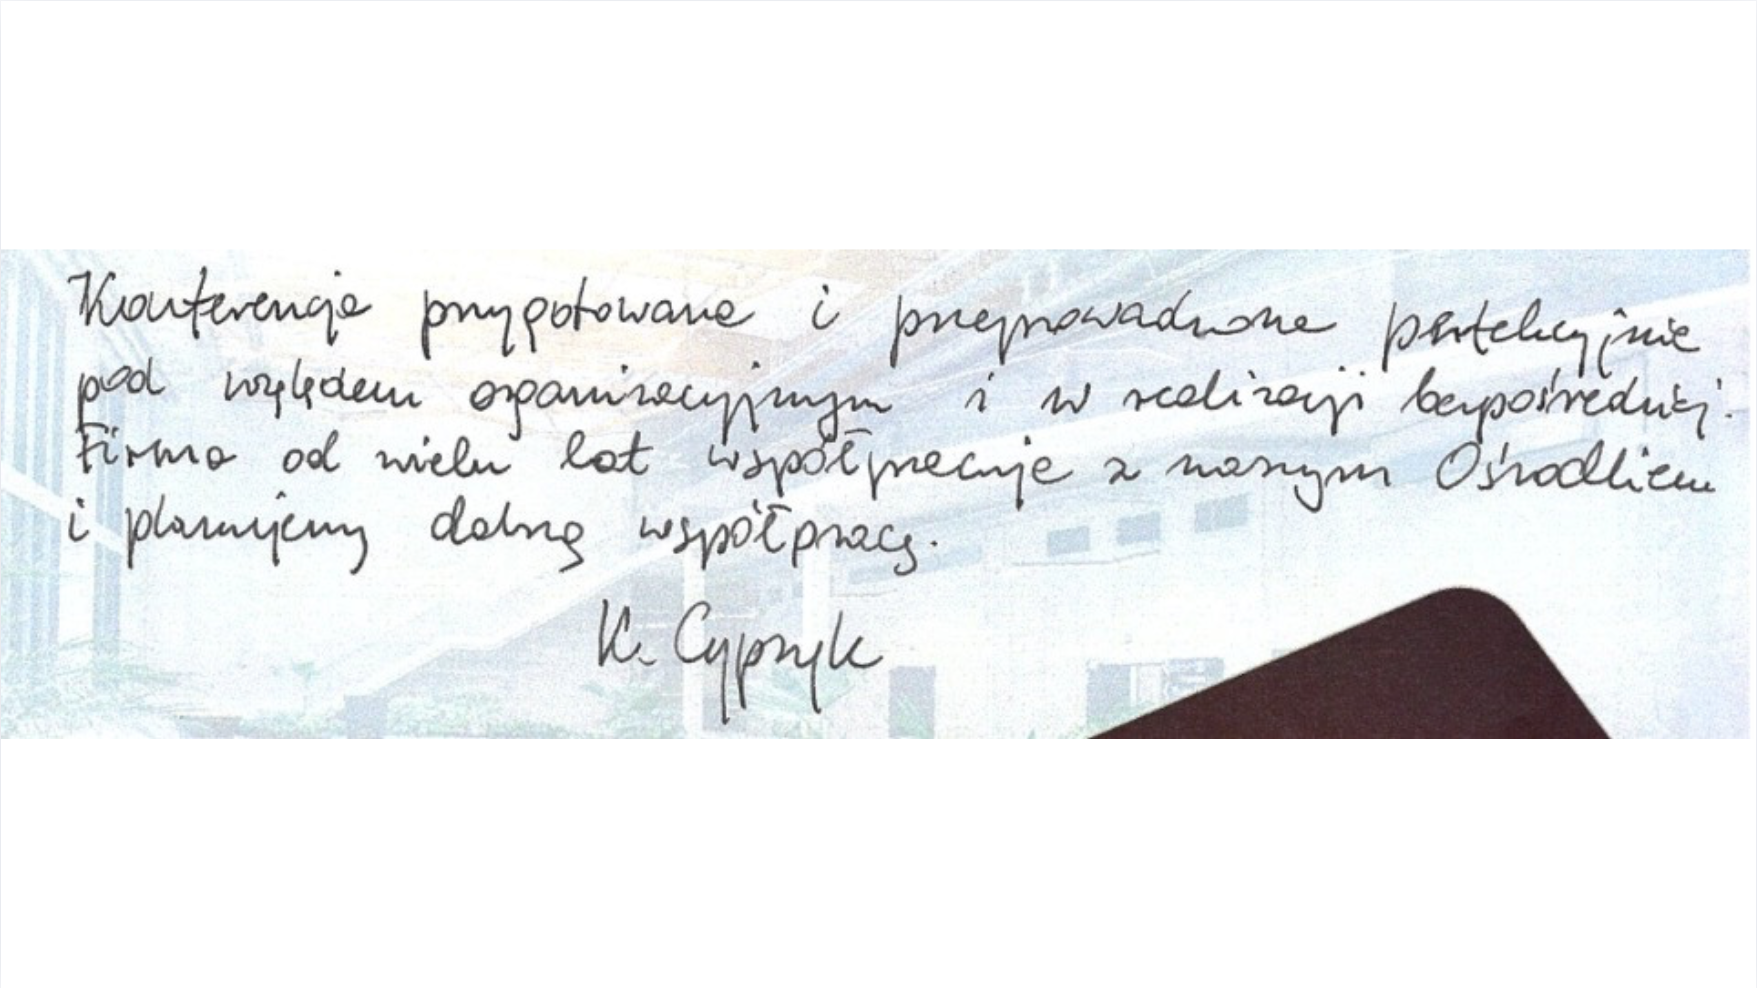 Konferencja przygotowana i przeprowadzona perfekcyjnie
pod względem organizacyjnym i w realizacji bezpośredniej.
Firma od wielu lat współpracuje z naszym Ośrodkiem
i planujemy dalszą współpracę.
K. Cypryk